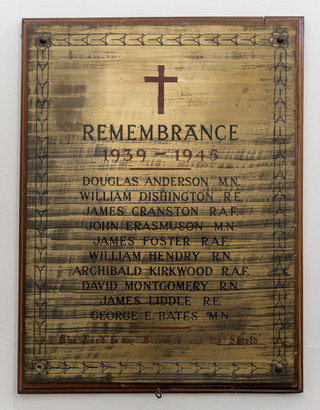 REMEMBRANCE
1939 - 1945
DOUGLAS ANDERSON M.N.
WILLIAM DISHINGTON R.E.
JAMES CRANSTON R.A.F.
JOHN ERASMUSON M.N.
JAMES FOSTER R.A.F.
WILLIAM HENDRY R.N.
ARCHIBALD KIRKWOOD R.A.F.
DAVID MONTGOMERY R.N.
JAMES LIDDLE R.E.
GEORGE E. BATES M.N.
The Lord is my Strength and my Shield